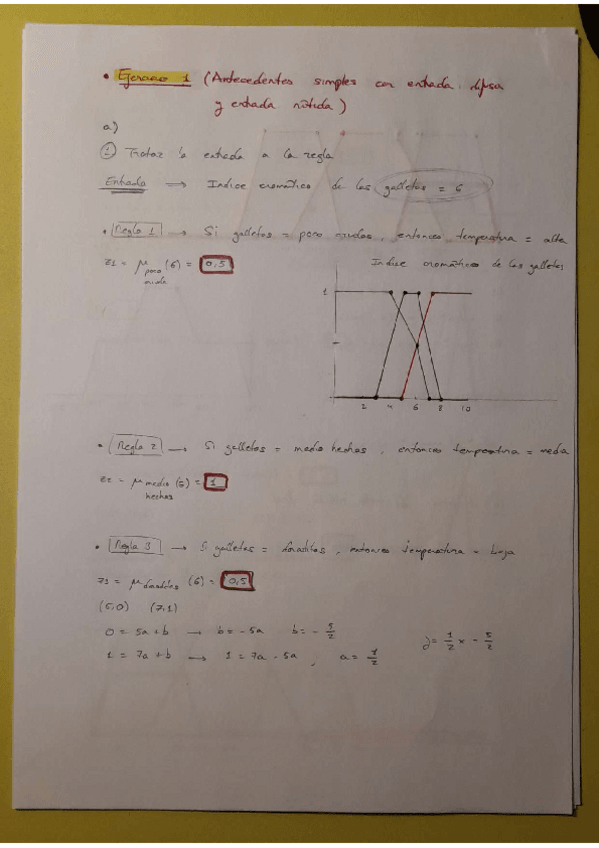 • Ejercicio 1 (Antecedentes simples con entrada difusa
y entrada nítida)
a)
① Tratar la entrada a la regla
Entrada → Indice cromático de las galletas = 6
• Regla 1 → Si galletas = poco crudas, entonces temperatura = alta
z1 = μ poco cruda (6) = 0,5
Indice cromático de las galletas
1
2 4 6 8 10
• Regla 2 → Si galletas = medio hechas, entonces temperatura = media
z2 = μ medio hechas (6) = 1
• Regla 3 → Si galletas = doraditas, entonces temperatura = baja
z3 = μ doraditas (6) = 0,5
(5,0) (7,1)
0 = 5a + b → b = -5a b = - 5/2
1 = 7a + b → 1 = 7a - 5a, a = 1/2
y = 1/2 x - 5/2